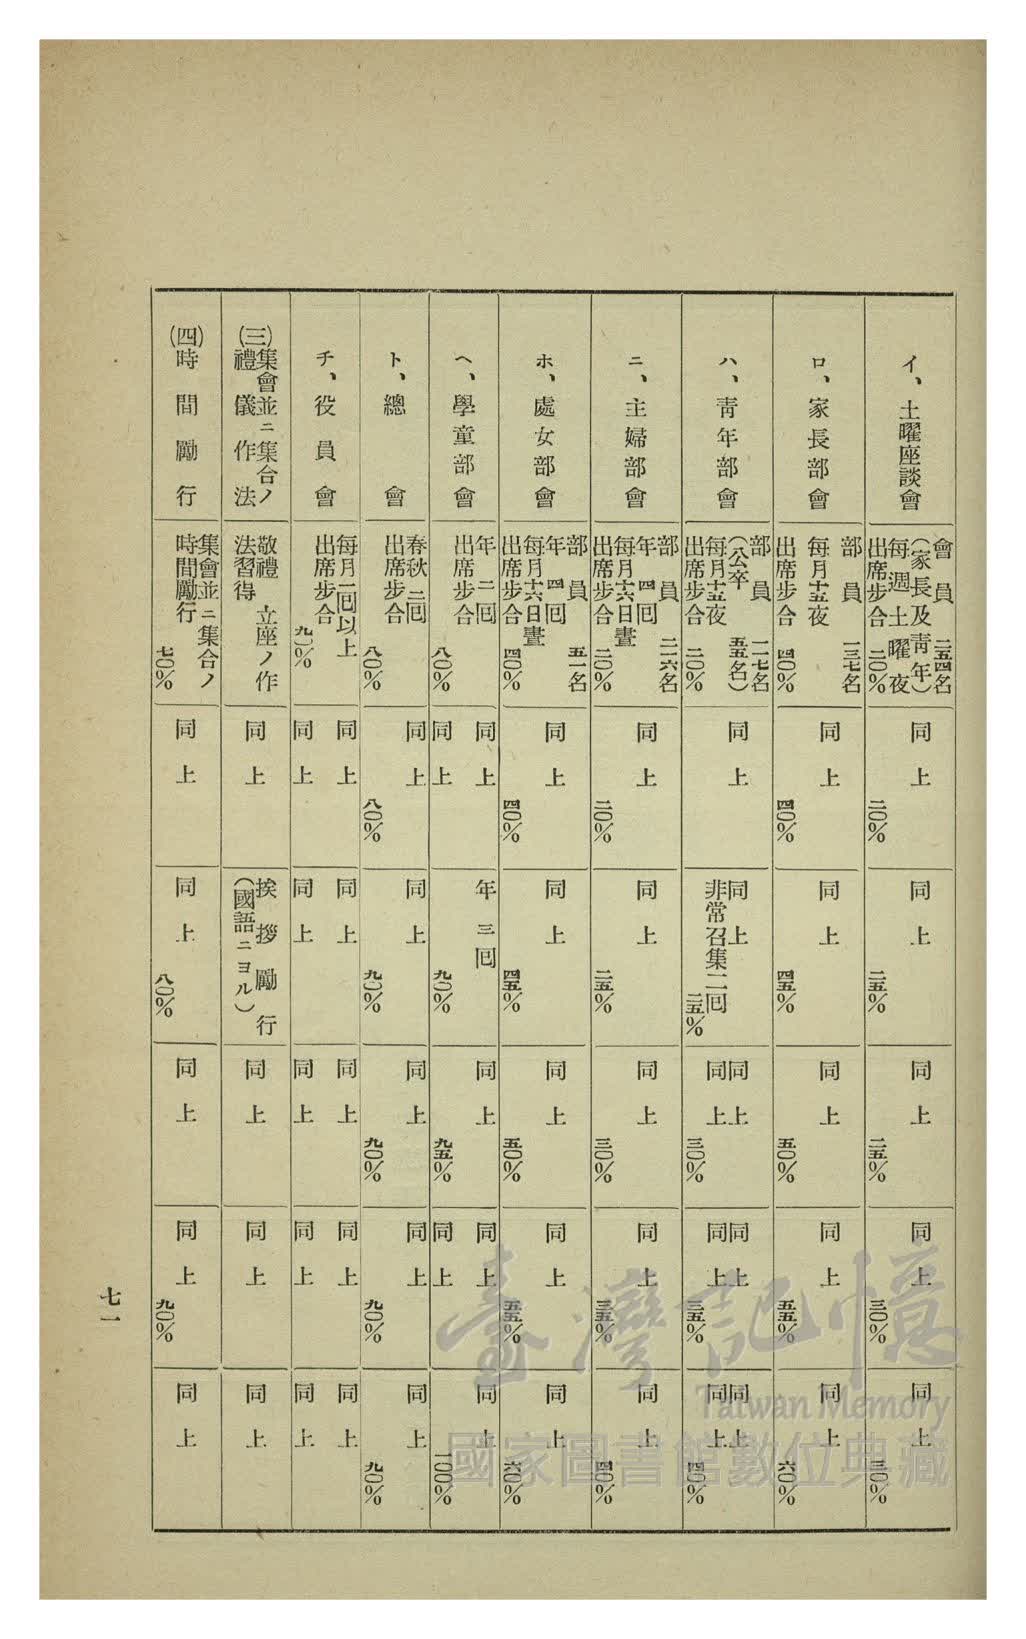 イ、土曜座談會
會員 二五四名
（家長及青年）
每週土曜夜
出席步合 二〇％
同上
二〇％
同上
二五％
同上
二五％
同上
三〇％
同上
三〇％
ロ、家長部會
部員 一三七名
每月十五夜
出席步合 四〇％
同上
四〇％
同上
四五％
同上
五〇％
同上
五五％
同上
六〇％
ハ、青年部會
部員 一一七名
（公卒 五五名）
每月十五夜
出席步合 二〇％
同上
同上
非常召集二回
二五％
同上
同上
三〇％
同上
同上
三五％
同上
同上
四〇％
ニ、主婦部會
部員 二一六名
年四回
每月十六日晝
出席步合 二〇％
同上
二〇％
同上
二五％
同上
三〇％
同上
三五％
同上
四〇％
ホ、處女部會
部員 五一名
年四回
每月十六日晝
出席步合 四〇％
同上
四〇％
同上
四五％
同上
五〇％
同上
五五％
同上
六〇％
ヘ、學童部會
年二回
出席步合 八〇％
同上
同上
年三回
九〇％
同上
九五％
同上
同上
同上
一〇〇％
ト、總會
春秋二回
出席步合 八〇％
同上
八〇％
同上
九〇％
同上
九〇％
同上
九〇％
同上
九〇％
チ、役員會
每月一回以上
出席步合 九〇％
同上
同上
同上
同上
同上
同上
同上
同上
同上
同上
(三)集會並ニ集合ノ
禮儀作法
敬禮 立座ノ作
法習得
同上
挨拶勵行
（國語ニヨル）
同上
同上
同上
(四)時間勵行
集會並ニ集合ノ
時間勵行 七〇％
同上
同上
八〇％
同上
同上
九〇％
同上
七一
臺灣記憶
Taiwan Memory
國家圖書館數位典藏